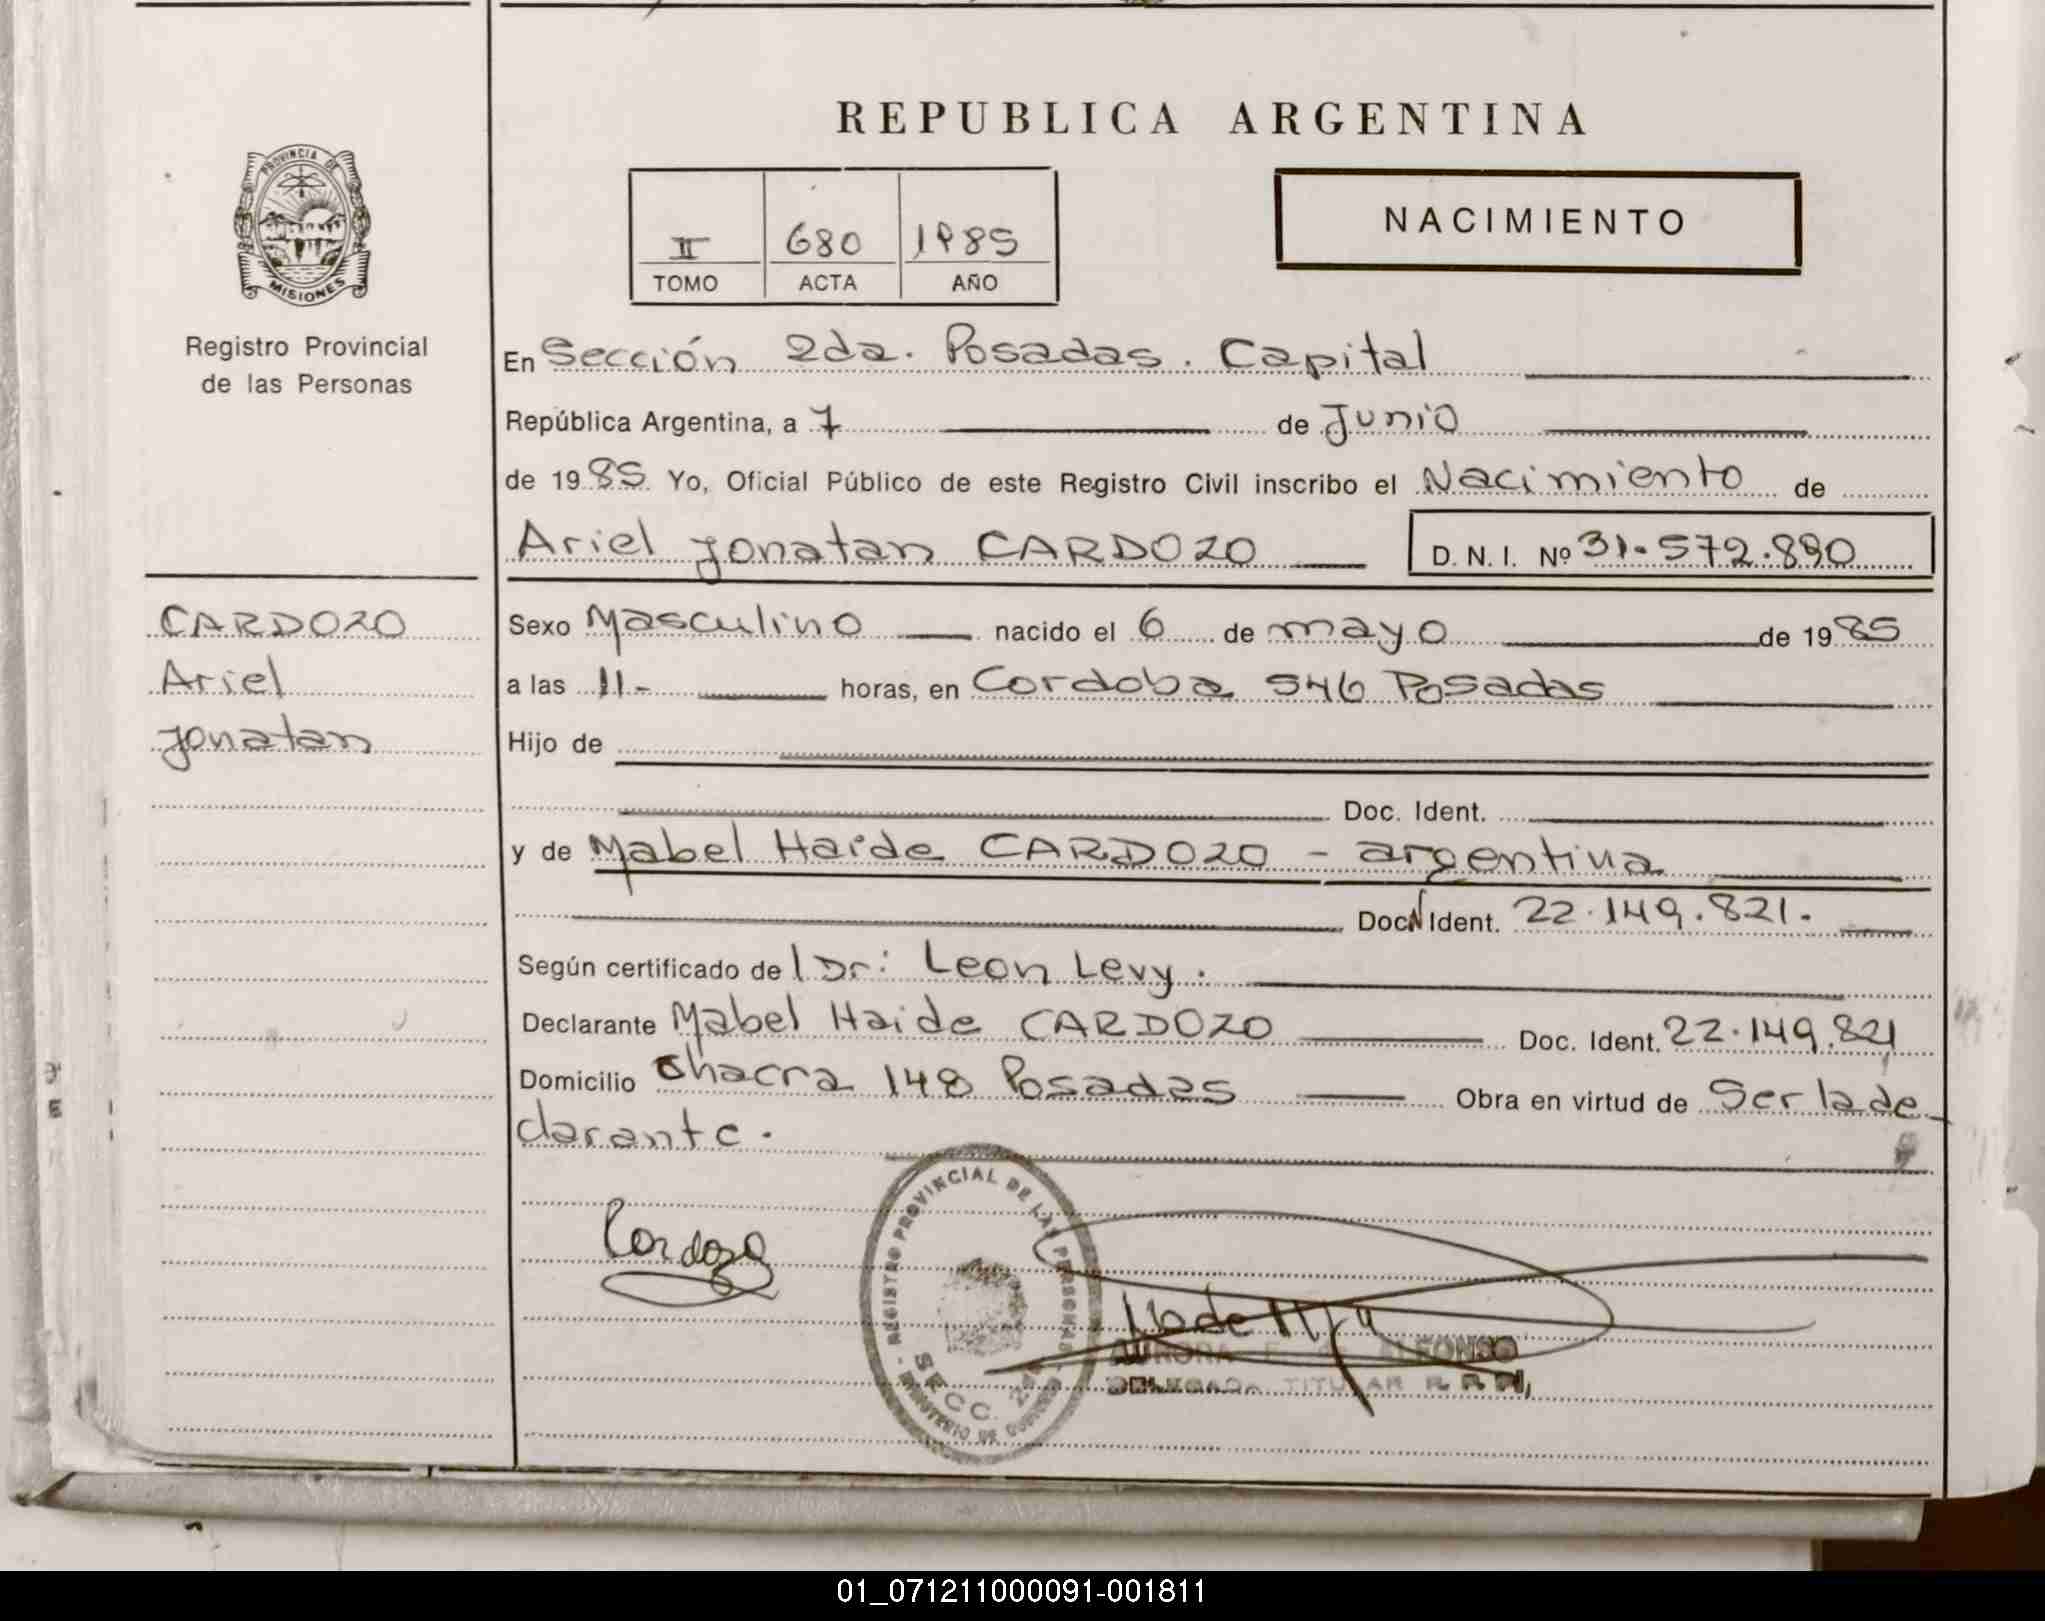 REPUBLICA ARGENTINA
PROVINCIA DE
MISIONES
Registro Provincial
de las Personas
II 680 1985
TOMO ACTA AÑO
NACIMIENTO
En Sección 2da. Posadas. Capital
República Argentina, a 7 de Junio
de 1985 Yo, Oficial Público de este Registro Civil inscribo el Nacimiento de
Ariel Jonatan CARDOZO D. N. I. Nº 31.572.890
CARDOZO
Ariel
Jonatan
Sexo Masculino nacido el 6 de mayo de 1985
a las 11- horas, en Cordoba 546 Posadas
Hijo de
Doc. Ident.
y de Mabel Haide CARDOZO - argentina
Doc. Ident. 22.149.821.
Según certificado de l Dr: Leon Levy.
Declarante Mabel Haide CARDOZO Doc. Ident. 22.149.821
Domicilio Chacra 148 Posadas Obra en virtud de Ser la de-
clarante.
Cardozo
REGISTRO PROVINCIAL DE LAS PERSONAS
SECC. 2da
MINISTERIO DE GOBIERNO
AURORA ALFONSO
DELEGADA TITULAR R. P. P.
01_071211000091-001811